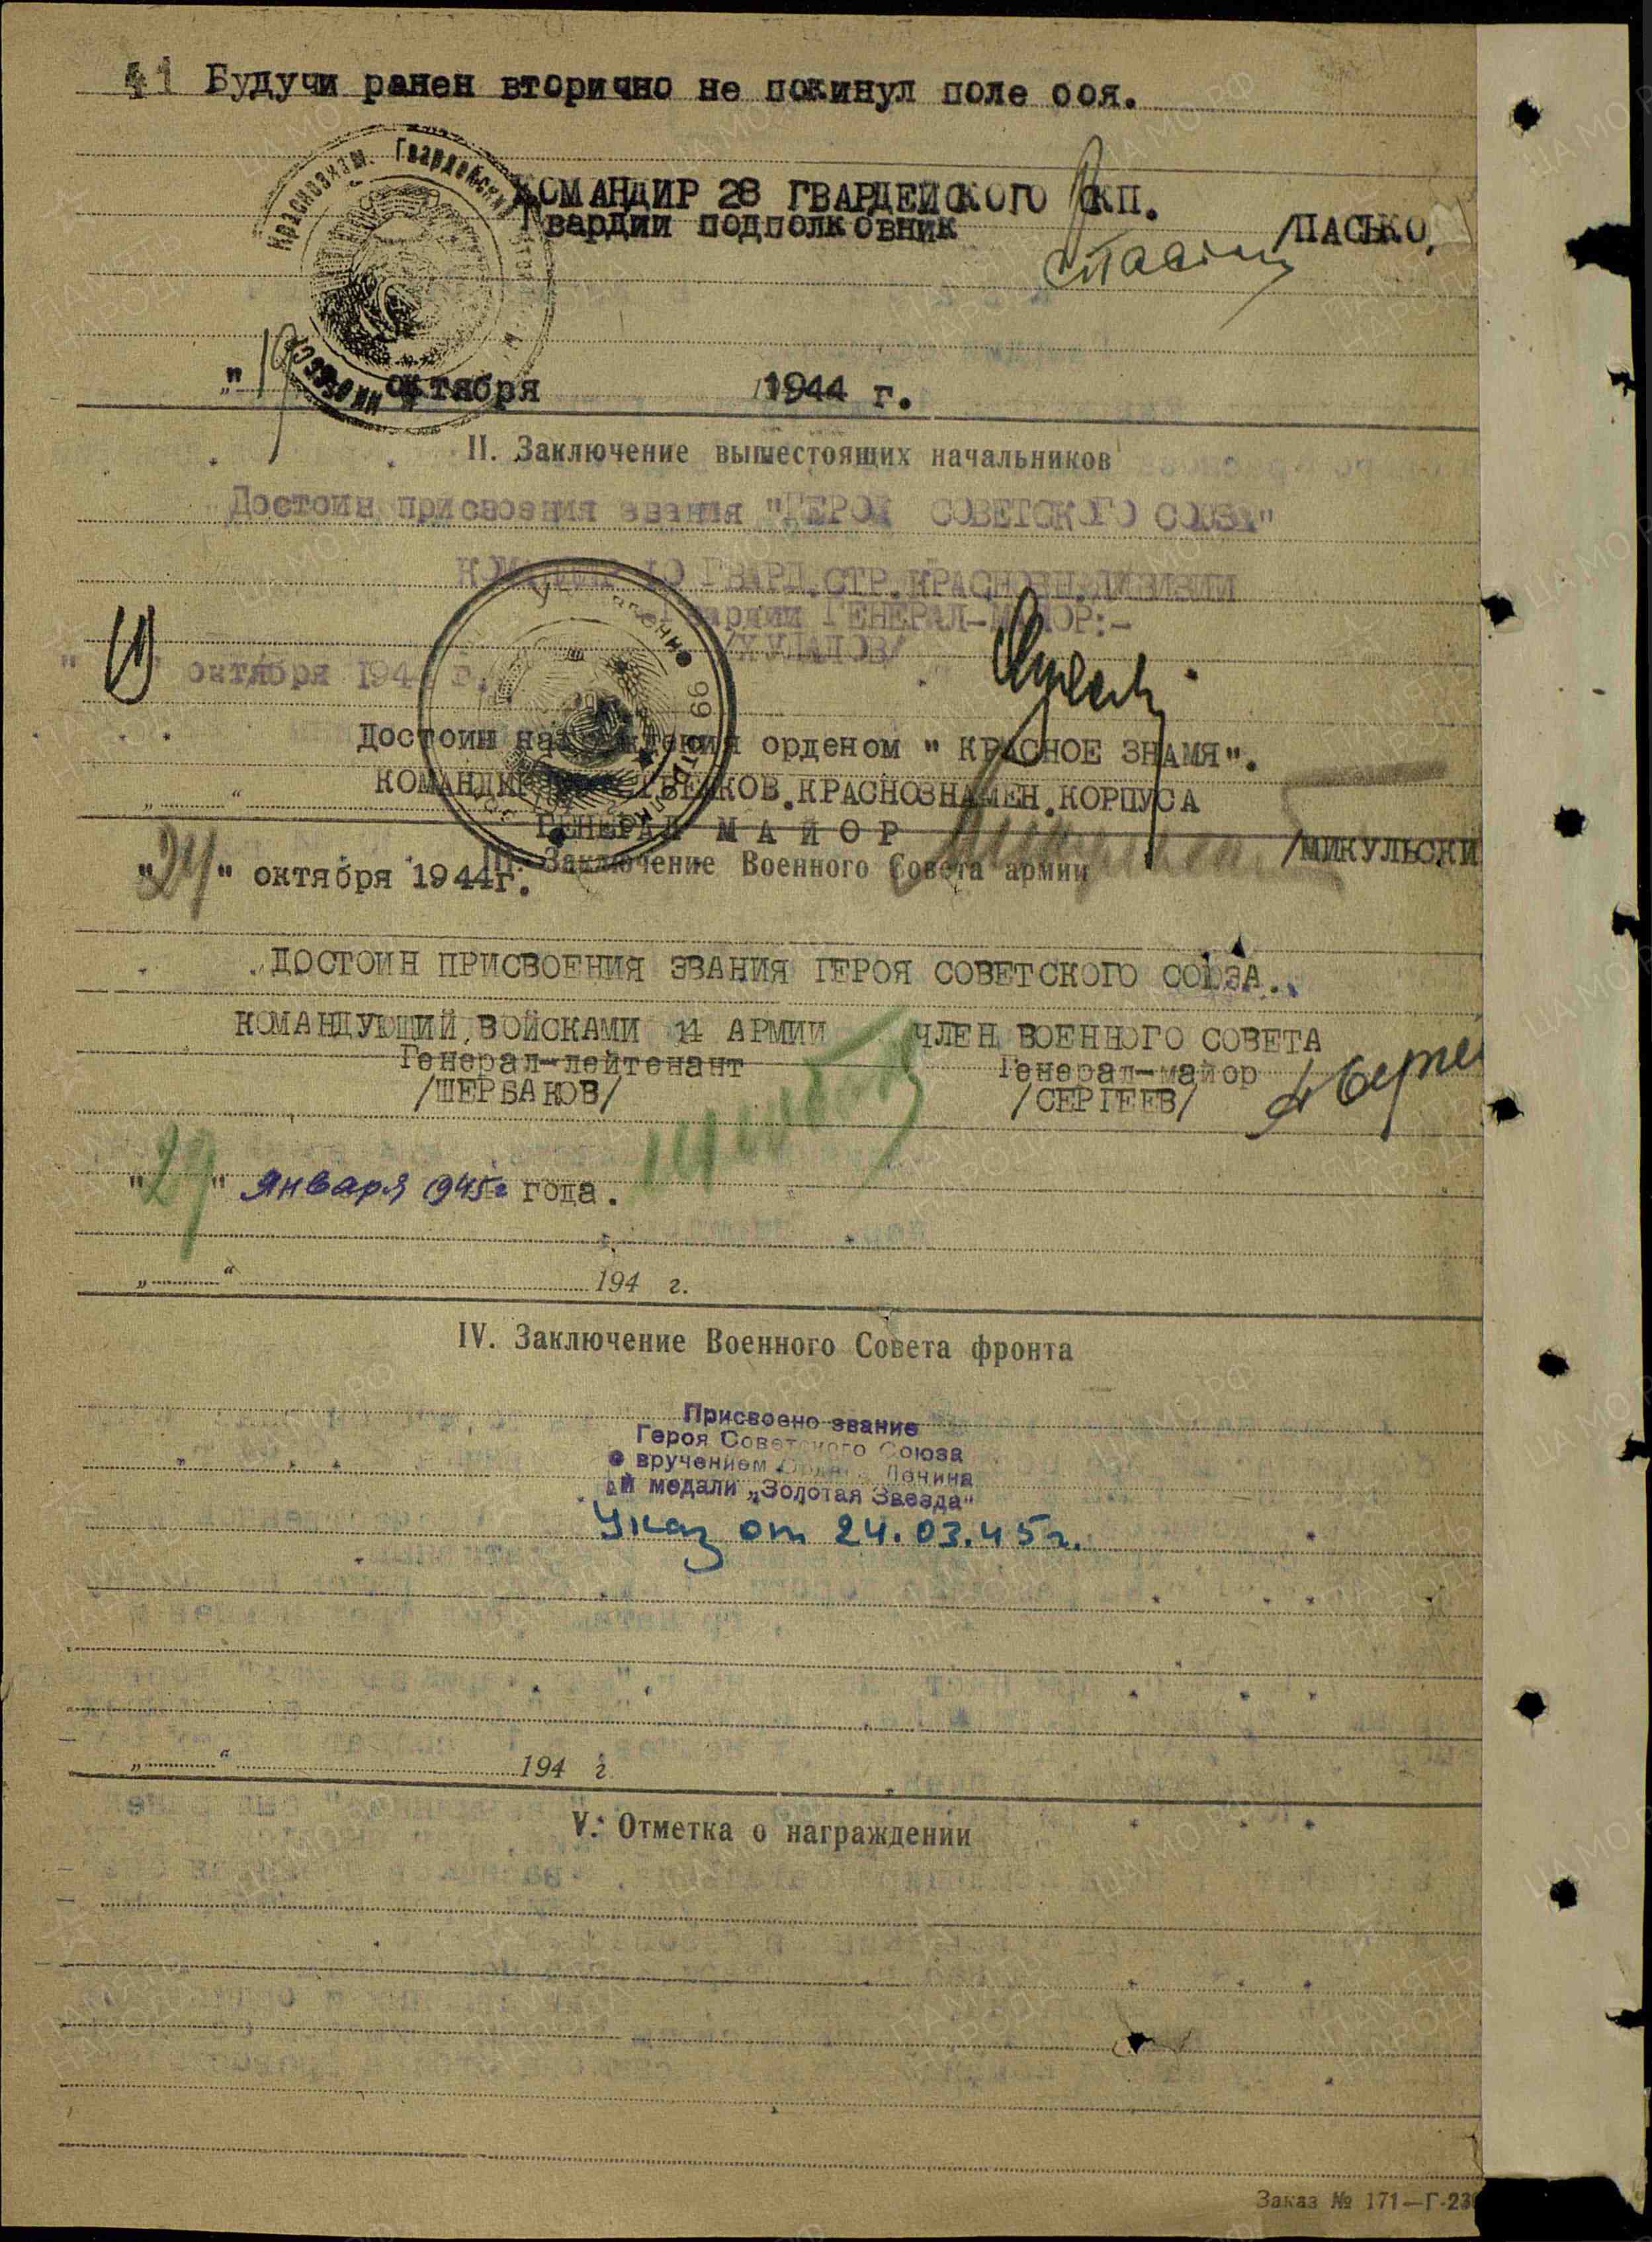 Будучи ранен вторично не покинул поле боя.
КОМАНДИР 28 ГВАРДЕЙСКОГО СКП.
Гвардии подполковник /ПАСЬКО.
"19 октября 1944 г.
II. Заключение вышестоящих начальников
Достоин присвоения звания "ГЕРОЯ СОВЕТСКОГО СОЮЗА"
КОМАНДИР 10 ГВАРД.СТР.КРАСНОЗН.ДИВИЗИИ
Гвардии ГЕНЕРАЛ-МАЙОР:-
/ХУДАЛОВ/
" " октября 1944 г.
Достоин награждения орденом " КРАСНОЕ ЗНАМЯ".
КОМАНДИР КРАСНОЗНАМЕН.КОРПУСА
ГЕНЕРАЛ МАЙОР /МИКУЛЬСКИ
III. Заключение Военного Совета армии
"24" октября 1944г.
ДОСТОИН ПРИСВОЕНИЯ ЗВАНИЯ ГЕРОЯ СОВЕТСКОГО СОЮЗА.
КОМАНДУЮЩИЙ ВОЙСКАМИ 14 АРМИИ ЧЛЕН ВОЕННОГО СОВЕТА
Генерал-лейтенант Генерал-майор
/ЩЕРБАКОВ/ /СЕРГЕЕВ/
"29" Января 1945г года.
„ “ 194 г.
IV. Заключение Военного Совета фронта
Присвоено звание
Героя Советского Союза
с вручением Ордена Ленина
и медали „Золотая Звезда"
Указ от 24.03.45г.
„ “ 194 г
V. Отметка о награждении
Заказ № 171—Г-23